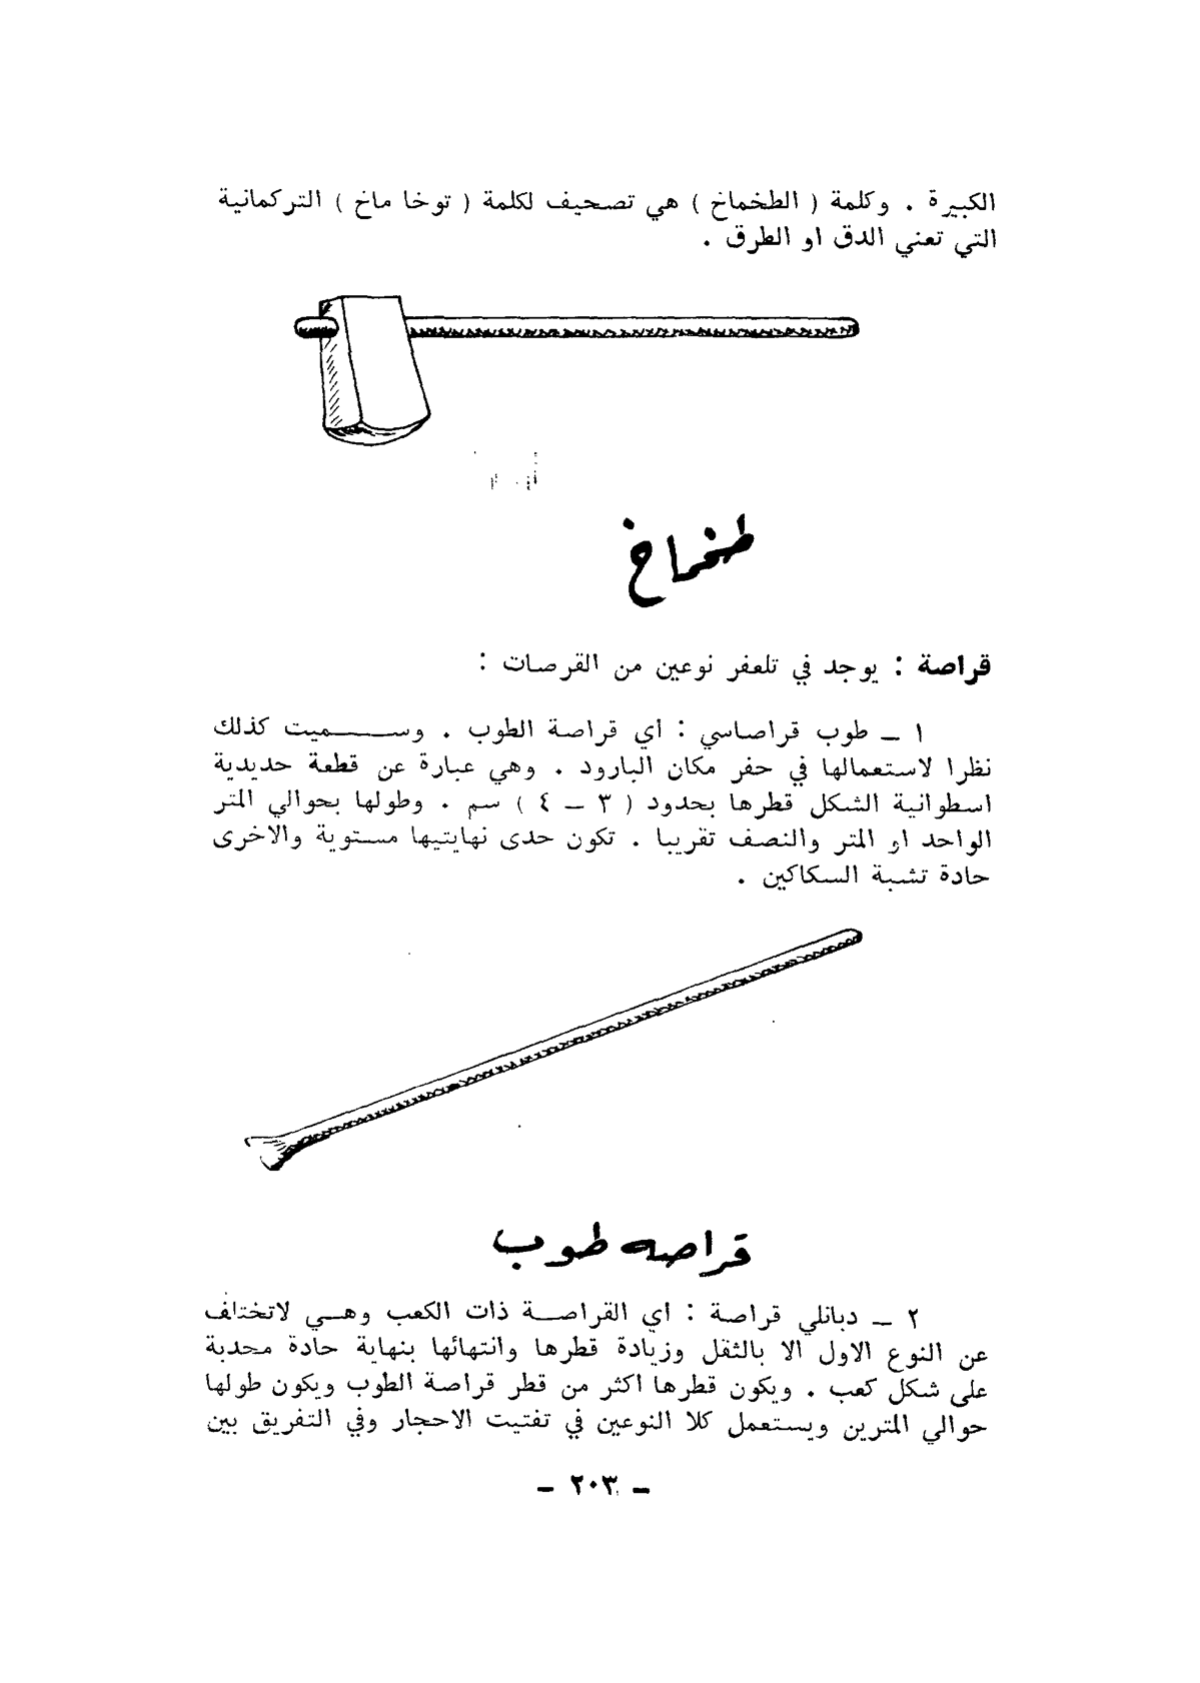 الكبيرة . وكلمة ( الطخماخ ) هي تصحيف لكلمة ( توخا ماخ ) التركمانية
التي تعني الدق او الطرق .
طخماخ
قراصة : يوجد في تلعفر نوعين من القرصات :
١ – طوب قراصاسي : اي قراصة الطوب . وسميت كذلك
نظرا لاستعمالها في حفر مكان البارود . وهي عبارة عن قطعة حديدية
اسطوانية الشكل قطرها بحدود ( ٣ – ٤ ) سم . وطولها بحوالي المتر
الواحد او المتر والنصف تقريبا . تكون حدى نهايتيها مستوية والاخرى
حادة تشبة السكاكين .
قراصه طوب
٢ – دبانلي قراصة : اي القراصة ذات الكعب وهي لاتختلف
عن النوع الاول الا بالثقل وزيادة قطرها وانتهائها بنهاية حادة محدبة
على شكل كعب . ويكون قطرها اكثر من قطر قراصة الطوب ويكون طولها
حوالي المترين ويستعمل كلا النوعين في تفتيت الاحجار وفي التفريق بين
– ٢٠٣ –